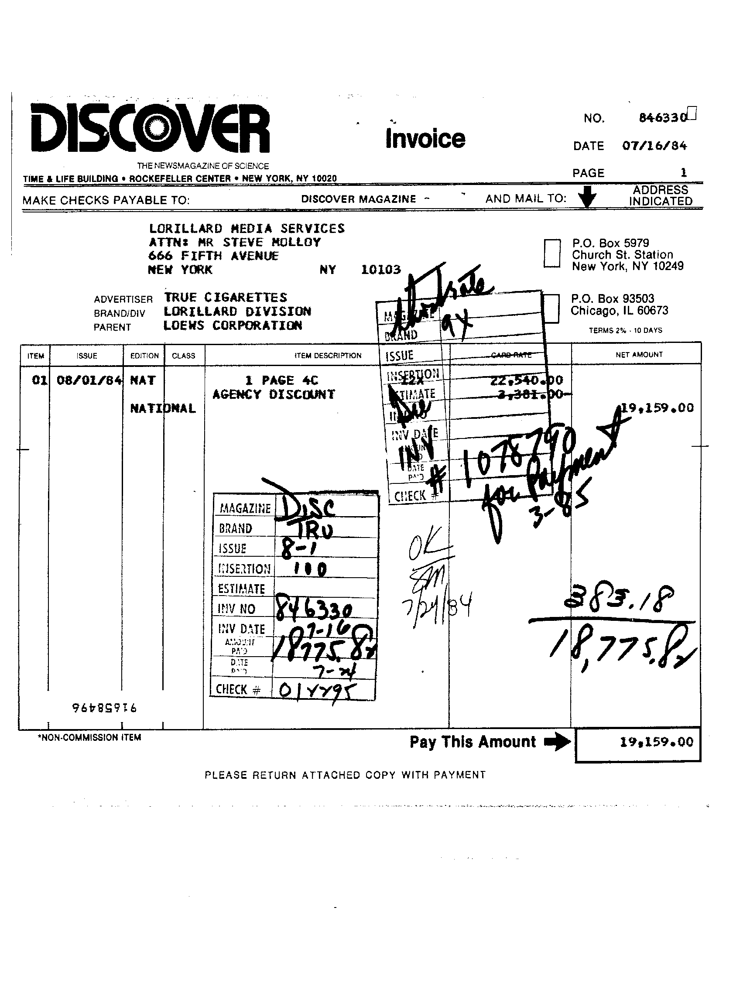 DISCOVER
THE NEWSMAGAZINE OF SCIENCE
TIME & LIFE BUILDING • ROCKEFELLER CENTER • NEW YORK, NY 10020
Invoice
NO. 846330
DATE 07/16/84
PAGE 1
MAKE CHECKS PAYABLE TO: DISCOVER MAGAZINE AND MAIL TO: ADDRESS INDICATED
LORILLARD MEDIA SERVICES
ATTN: MR STEVE MOLLOY
666 FIFTH AVENUE
NEW YORK NY 10103
P.O. Box 5979
Church St. Station
New York, NY 10249
P.O. Box 93503
Chicago, IL 60673
TERMS 2% - 10 DAYS
ADVERTISER TRUE CIGARETTES
BRAND/DIV LORILLARD DIVISION
PARENT LOEWS CORPORATION
ITEM ISSUE EDITION CLASS ITEM DESCRIPTION CARD RATE NET AMOUNT
01 08/01/84 NAT 1 PAGE 4C 12X 22,540.00
AGENCY DISCOUNT 3,381.00-
NATIONAL 19,159.00
MAGAZINE
BRAND 9X
ISSUE
INSERTION
ESTIMATE
INV DATE
DATE PA'D
CHECK #
INV # 1078790
for Payment
3-85
MAGAZINE DISC
BRAND TRU
ISSUE 8-1
INSERTION 100
ESTIMATE
INV NO 846330
INV DATE 7-16
AMOUNT PA'D 18775.82
DATE PA'D 7-24
CHECK #
OK
SM
7/24/84
383.18
18,775.82
91658496
*NON-COMMISSION ITEM
Pay This Amount 19,159.00
PLEASE RETURN ATTACHED COPY WITH PAYMENT